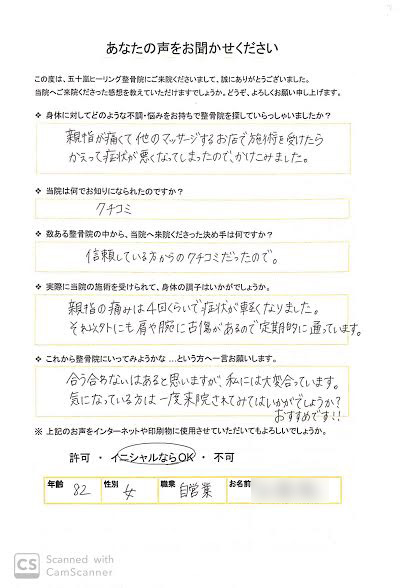 あなたの声をお聞かせください
この度は、五十嵐ヒーリング整骨院にご来院くださいまして、誠にありがとうございました。
当院へご来院くださった感想を教えていただけますでしょうか。どうぞ、よろしくお願い申し上げます。
❖ 身体に対してどのような不調・悩みをお持ちで整骨院を探していらっしゃいましたか？
親指が痛くて他のマッサージするお店で施術を受けたら
かえって症状が悪くなってしまったので、かけこみました。
❖ 当院は何でお知りになられたのですか？
クチコミ
❖ 数ある整骨院の中から、当院へ来院くださった決め手は何ですか？
信頼している方からのクチコミだったので。
❖ 実際に当院の施術を受けられて、身体の調子はいかがでしょうか。
親指の痛みは4回くらいで症状が軽くなりました。
それ以外にも肩や腕に古傷があるので定期的に通っています。
❖ これから整骨院にいってみようかな …という方へ一言お願いします。
合う合わないはあると思いますが、私には大変合っています。
気になっている方は一度来院されてみてはいかがでしょうか？
おすすめです!!
※ 上記のお声をインターネットや印刷物に使用させていただいてもよろしいでしょうか。
許可 ・ イニシャルならOK ・ 不可
年齢 82 性別 女 職業 自営業 お名前
CS Scanned with
CamScanner